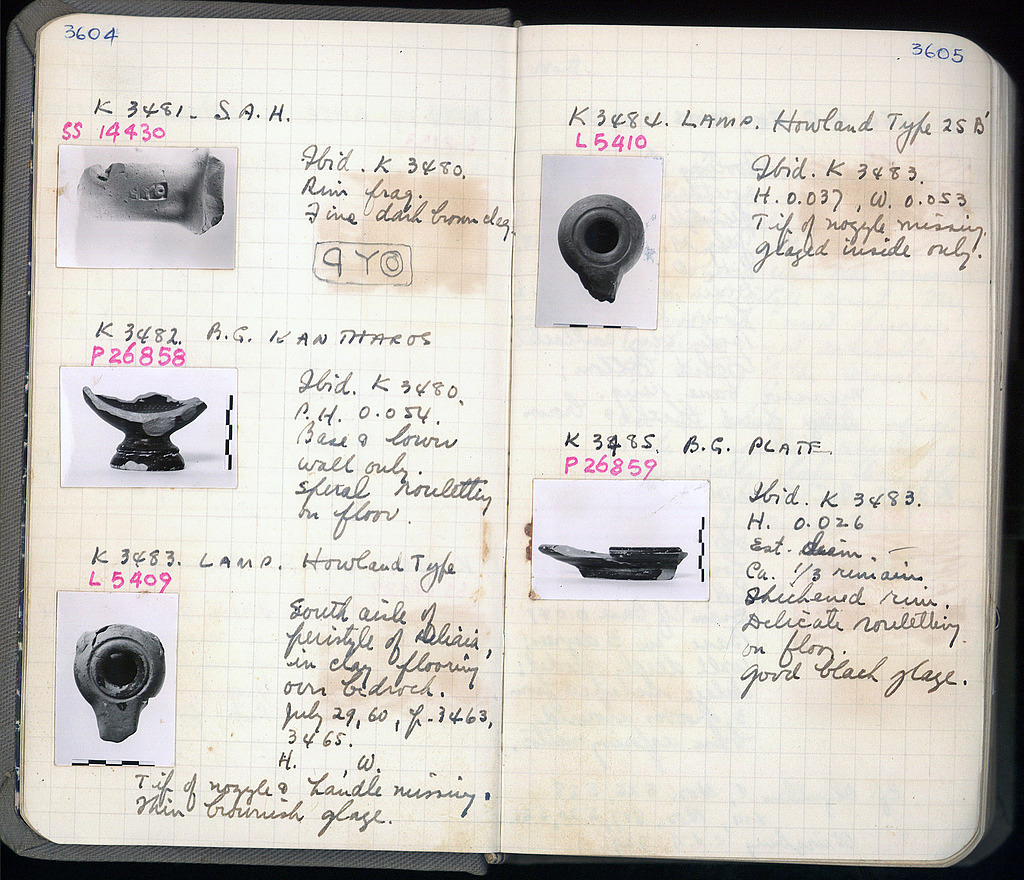 3604
K 3481. S.A.H.
SS 14430
Ibid. K 3480.
Rim frag.
Fine dark brown clay.
ϤΥΟ
K 3482. B.G. KANTHAROS
P26858
Ibid. K 3480.
P.H. 0.054.
Base & lower
wall only.
Spiral rouletting
on floor.
K 3483. LAMP. Howland Type
L 5409
South aisle of
peristyle of
in clay flooring
over bedrock.
July 29, 60, p. 3463,
3465.
H. , W.
Tip of nozzle & handle missing.
Thin brownish glaze.
3605
K 3484. LAMP. Howland Type 25 B'
L5410
Ibid. K 3483.
H. 0.037, W. 0.053
Tip of nozzle missing.
Glazed inside only.
K 3485. B.G. PLATE.
P26859
Ibid. K 3483.
H. 0.026
Est. Diam. —
Ca. 1/3 remains.
Thickened rim.
Delicate rouletting
on floor.
Good black glaze.